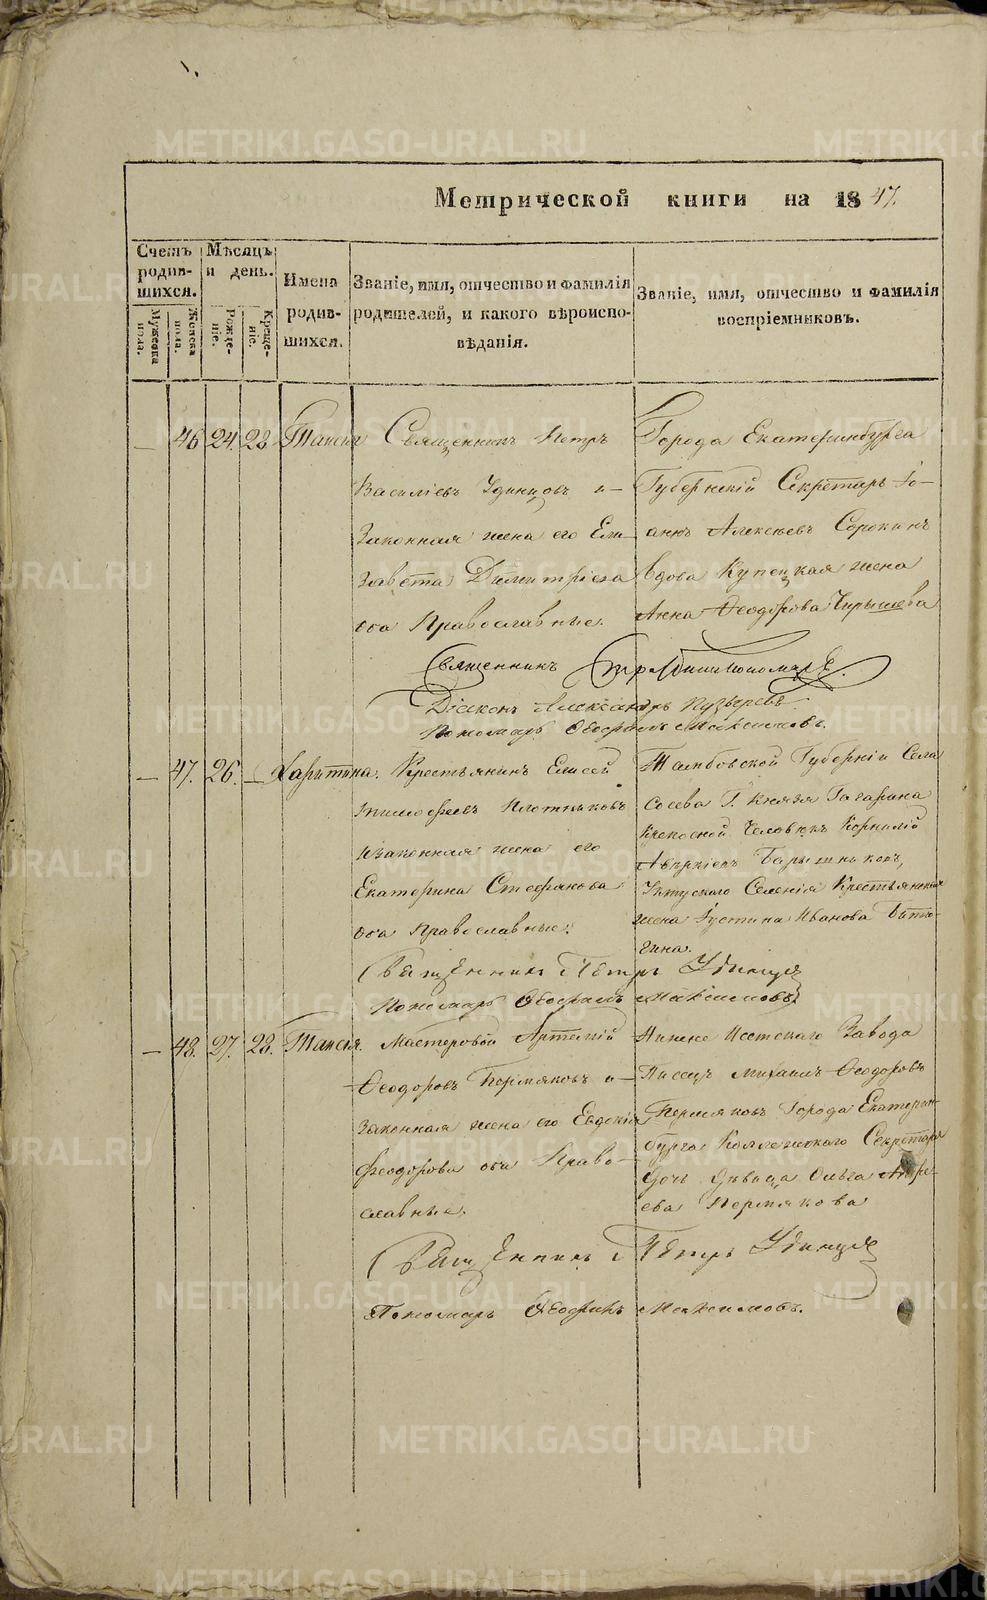 Метрической книги на 1847.
Счетъ родившихся.
Мужеска пола.
Женска пола.
Мѣсяцъ и день.
Рожденіе.
Крещеніе.
Имена родившихся.
Званіе, имя, отчество и фамилія
родителей, и какого вѣроиспо-
вѣданія.
Званіе, имя, отчество и фамилія
воспріемниковъ.
— 46 24. 28 Таисія
Священникъ Петръ
Василіевъ Удинцовъ и
законная жена его Ели-
завета Димитріева
оба Православные.
Города Екатеринбурга
Губернскій Секретарь Іо-
аннъ Алексѣевъ Сорокинъ
вдова Купецкая жена
Анна Ѳеодорова
Священникъ
Діаконъ Александръ Пузыревъ.
Пономарь Максимовъ.
— 47. 26. — Харитина.
Крестьянинъ Елисей
Тимофеевъ Плотниковъ
и законная жена его
Екатерина Стефанова
оба Православные.
Тамбовской Губерніи Села
Г. Князя Гагарина
Крепосной Человѣкъ Корнилій
Уктускаго Селенія Крестьянская
жена Іустина Иванова
гина.
Священникъ Петръ Удинцо
Пономарь Максимовъ
— 48. 27. 28. Таисія.
Мастеровой Артемій
Ѳеодоровъ Пермяковъ и
законная жена его Евдокія
Феодорова оба Право-
славные.
Нижне Исетскаго Завода
Писецъ Михаилъ Ѳеодоровъ
Пермяковъ Города Екатерин-
бурга Коллежскаго Секретаря
дочь дѣвица Ольга
ева Пермякова
Священникъ Петръ Удинцо
Пономарь Максимовъ.
METRIKI.GASO-URAL.RU